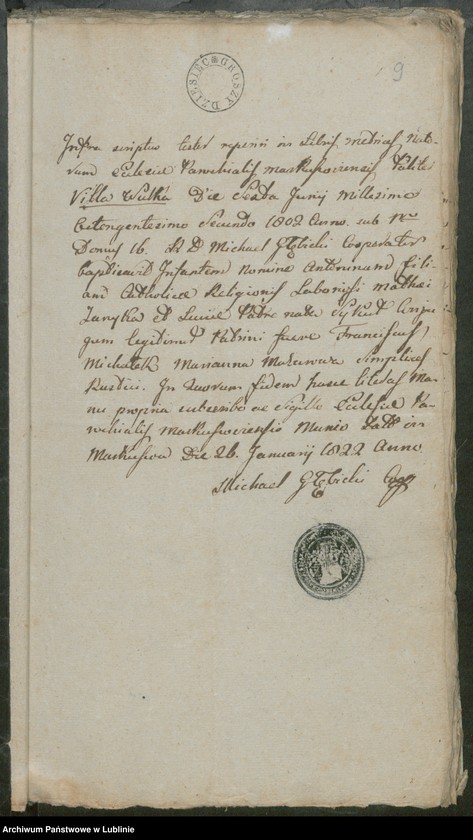 DZIESIĘĆ GROSZY
9
Infra scriptus testor reperiri in Libris metrices Nato-
rum Ecclesiæ Parochialis Markuszoviensis Talite
Villa Wulka Die Sexta Junij Millesimo
Octengentesimo Secundo 1802 Anno. sub Nro
Domus 16. A D Michael Głębicki Cooperator
baptisavit Infantem nomine Antoninam fili-
am Catholicæ Religionis Laboriosi Mathei
et Luciæ nata Conju
gum legitimo Patrini fuere Franciscus
Michałek Marianna Simplices
Rustici. In Quorum fidem hasce literas Ma-
nu propria subscribo ac Sigillo Ecclesiæ Pa-
rochialis Markuszoviensis Munio Datt in
Markuszow Die 26. Januarij 1822 Anno
Michael Głębicki Coop
Archiwum Państwowe w Lublinie